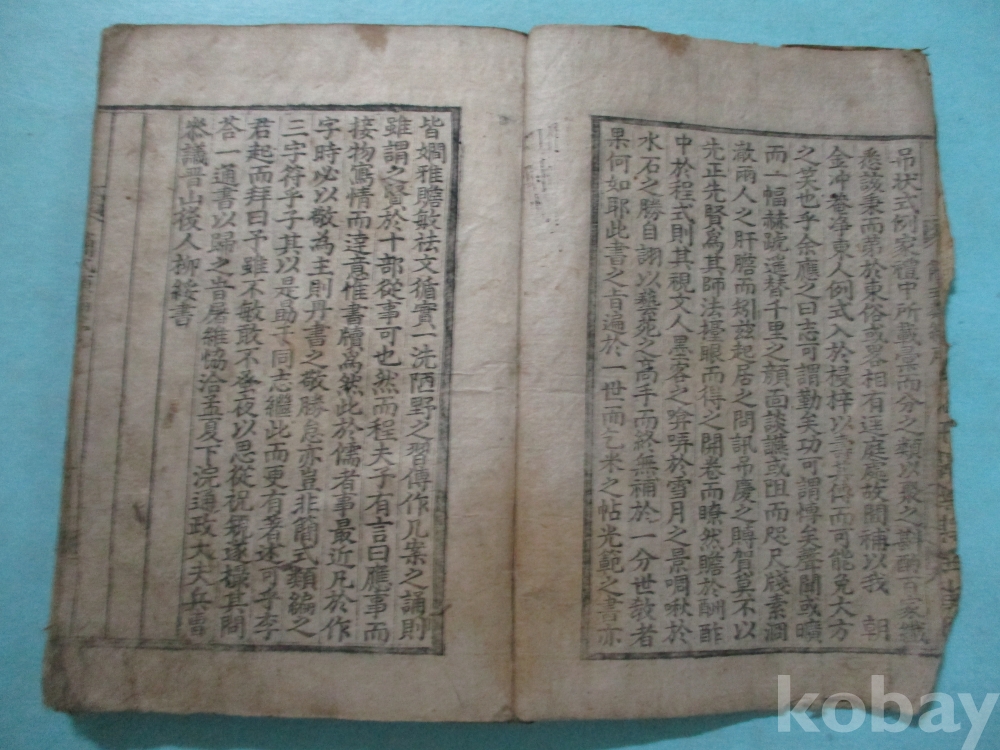 吊狀式例家禮中所載彙而分之類以聚之斟酌百家纖
悉該秉而第於東俗或畧相有逕庭處故間補以我 朝
金沖菴率東人例式入於梓以壽其傳而可能免大方
之笑也乎余應之曰志可謂勤矣功可謂博矣聲聞或曠
而一幅赫蹏遞替千里之顔面談讌或阻而咫尺牋素瀾
漱兩人之肝膽而矧玆起居之問訊吊慶之賻賀莫不以
先正先賢爲其師法擡眼而得之開卷而瞭然瞻於酬酢
中於程式則其視文人墨客之哢弄於雪月之景啁啾於
水石之勝自詡以藝苑之高手而終無補於一分世敎者
果何如耶此書之旨遍於一世而乞米之帖光範之書亦
皆嫺雅贍敏祛文循實一洗陋野之習傳作几案之誦則
雖謂之賢於十部從事可也然而程夫子有言曰應事而
接物寫情而達意惟書牘爲然此於儒者事最近凡於作
字時必以敬為主則丹書之敬勝怠亦豈非簡式類編之
三字符乎子其以是勗于同志繼此而更有著述可乎李
君起而拜曰予雖不敏敢不夙夜以思從祝規遂樣其問
荅一通書以歸之旹屠維協洽孟夏下浣通政大夫兵曹
叅議晋山後人柳綏書
kobay